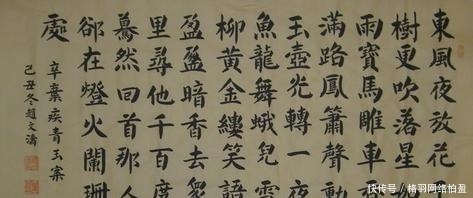 東風夜放花千
樹更吹落星如
雨寶馬雕車香
滿路鳳簫聲動
玉壺光轉一夜
魚龍舞蛾兒雪
柳黃金縷笑語
盈盈暗香去眾
里尋他千百度
驀然回首那人
卻在燈火闌珊
處
辛棄疾青玉案
己丑冬趙文濤
快传号/格羽网络怕盈